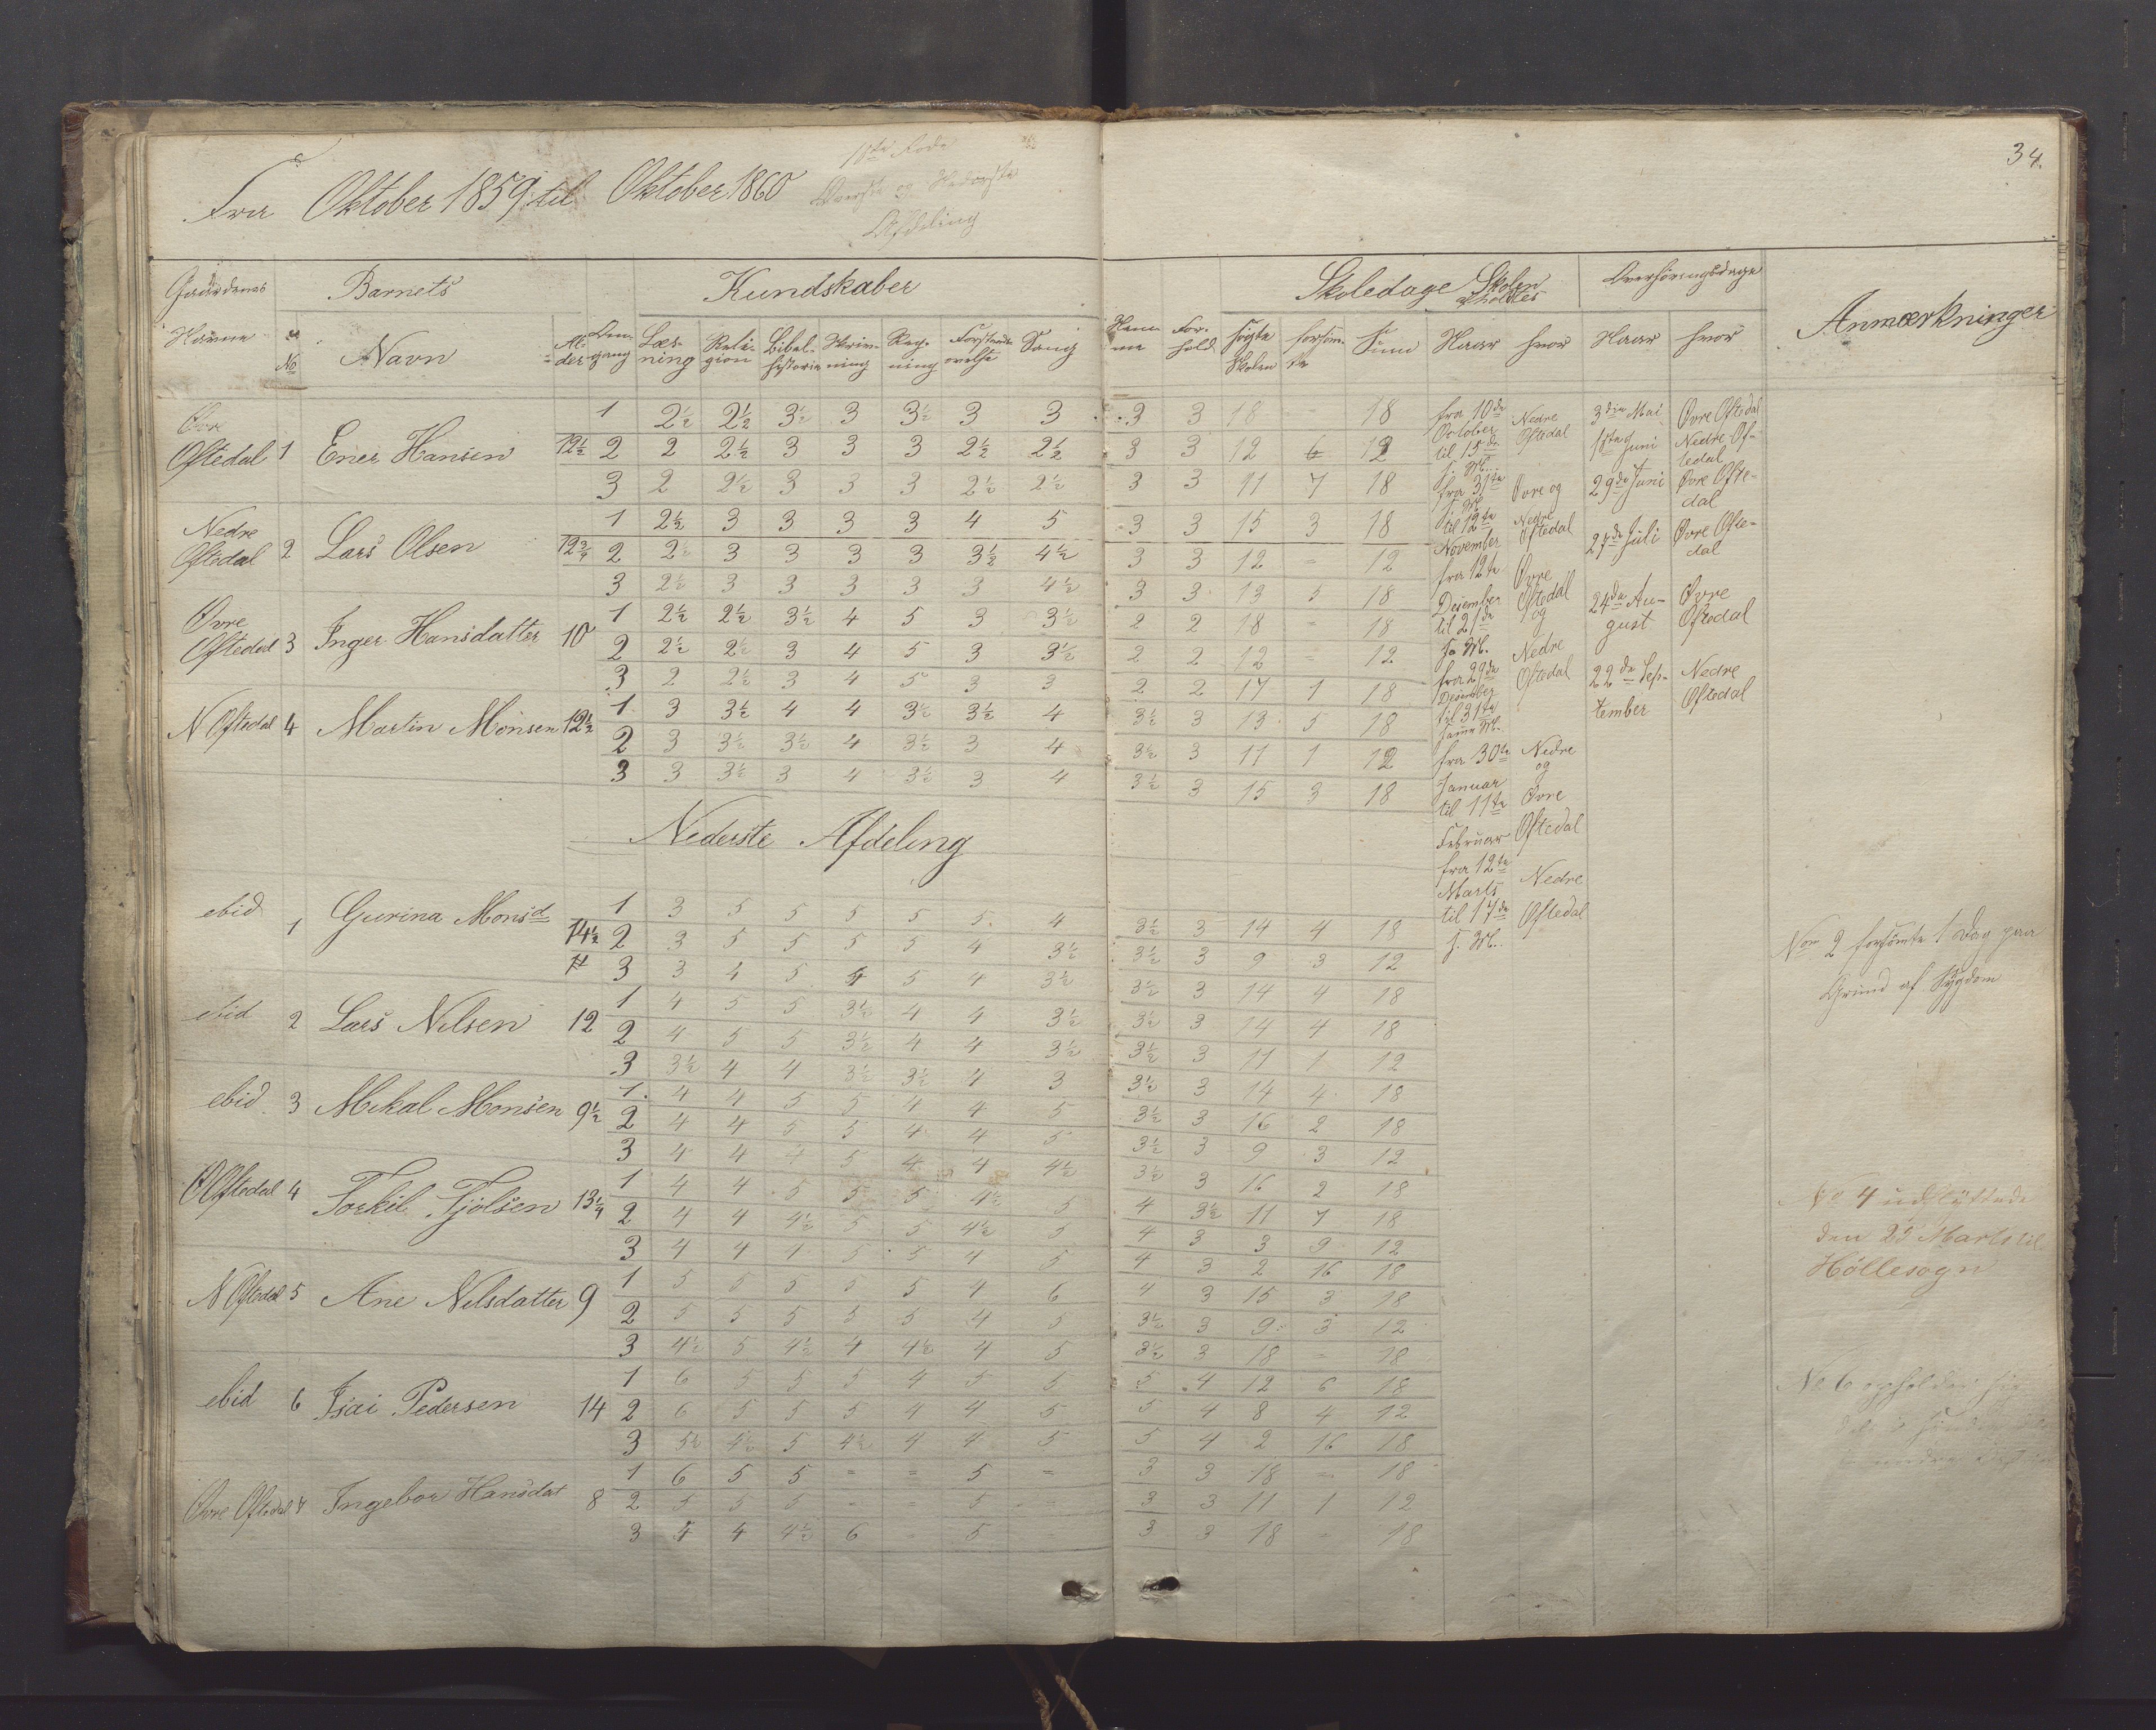 34.
Fra Oktober 1859 til Oktober 1860
Øverste og Nederste
Afdeling
Gaardenes Barnets Kundskaber Skoledage Skolen Overhøringsdage Anmærkninger
Navne No Navn Al- der Læs- ning Reli- gion Bibel- historie Skriv- ning Reg- ning Sang For- hold søgte Skolen forsøm- te Sum Naar hvor Naar hvor
Øvre Oftedal 1 Ener Hansen 12½
1 2½ 2½ 3½ 3 3½ 3 3 3 3 18 = 18
2 2 2½ 3 3 3 2½ 2½ 3 3 12 6 12
3 2 2½ 3 3 3 2½ 2½ 3 3 11 7 18
Nedre Oftedal 2 Lars Olsen 12¾
1 2½ 3 3 3 3 4 5 3 3 15 3 18
2 2½ 3 3 3 3 3½ 4½ 3 3 12 = 12
3 2½ 3 3 3 3 3 4½ 3 3 13 5 18
Øvre Oftedal 3 Inger Hansdatter 10
1 2½ 2½ 3½ 4 5 3 3½ 2 2 18 = 18
2 2½ 2½ 3 4 5 3 3½ 2 2 12 = 12
3 2 2½ 3 4 5 3 3 2 2 17 1 18
N Oftedal 4 Martin Monsen 12½
1 3 3½ 4 4 3½ 3½ 4 3½ 3 13 5 18
2 3 3½ 3½ 4 3½ 3 4 3½ 3 11 1 12
3 3 3½ 3 4 3½ 3 4 3½ 3 15 3 18
fra 10de October til 15de s. M. Nedre Oftedal
fra 31te s. M. til 12te November Øvre og Nedre Oftedal
fra 12te Desember til 21de Øvre Oftedal og
fra 29de Desember til 31te Nedre Oftedal
fra 30te Januar til 11te Februar Nedre og Øvre Oftedal
fra 12te Marts til 17de s. M. Nedre Oftedal
3die Mai Øvre Oftedal
1ste Juni Nedre Of- tedal
29de Juni Øvre Ofte- dal
27de Juli Øvre Ofte- dal
24de Au- gust Øvre Oftedal
22de Sep- tember Nedre Oftedal
Nederste Afdeling
ebid 1 Gurina Monsd 14½
1 3 5 5 5 5 5 4 3½ 3 14 4 18
2 3 5 5 5 5 4 3½ 3½ 3 9 3 12
3 3 4 5 4 5 4 3½ 3½ 3 14 4 18
ebid 2 Lars Nilsen 12
1 4 5 5 3½ 4 4 3½ 3½ 3 14 4 18
2 4 5 5 3½ 4 4 3½ 3½ 3 11 1 12
3 3½ 4 4 3½ 3½ 4 3 3½ 3 14 4 18
ebid 3 Mikal Monsen 9½
1 4 4 5 5 4 4 5 3½ 3 16 2 18
2 4 4 5 5 4 4 5 3½ 3 9 3 12
3 4 4 4 5 4 4 4½ 3½ 3 16 2 18
Ø Oftedal 4 Torkil Tjølsen 13¼
1 4 4 5 5 5 4½ 5 4 3½ 11 7 18
2 4 4 4½ 5 5 4½ 5 4 3 3 9 12
3 4 4 4 5 5 4 5 4 3 2 16 18
N Oftedal 5 Ane Nilsdatter 9
1 5 5 5 5 5 4 6 4 3 15 3 18
2 5 5 5 5 5 4 5 3½ 3 9 3 12
3 4½ 5 4½ 4 4½ 4 5 3½ 3 18 = 18
ebid 6 Isai Pedersen 14
1 6 5 5 5 4 5 5 5 4 12 6 18
2 6 5 5 5 4 4 5 5 4 8 4 12
3 5½ 4½ 5 4½ 4 4 5 5 4 2 16 18
Øvre Oftedal 7 Ingebor Hansdat 8
1 6 5 5 = = 5 = 3 3 18 = 18
2 5 5 5 = 5 = 3 3 11 1 12
3 4 4 4½ 6 5 3 3 18 = 18
No 2 forsømte 1 Dag paa
Grund af Sygdom
No 4 udflyttede
den 25 Marts til
Höllesogn
No 6 opholder sig